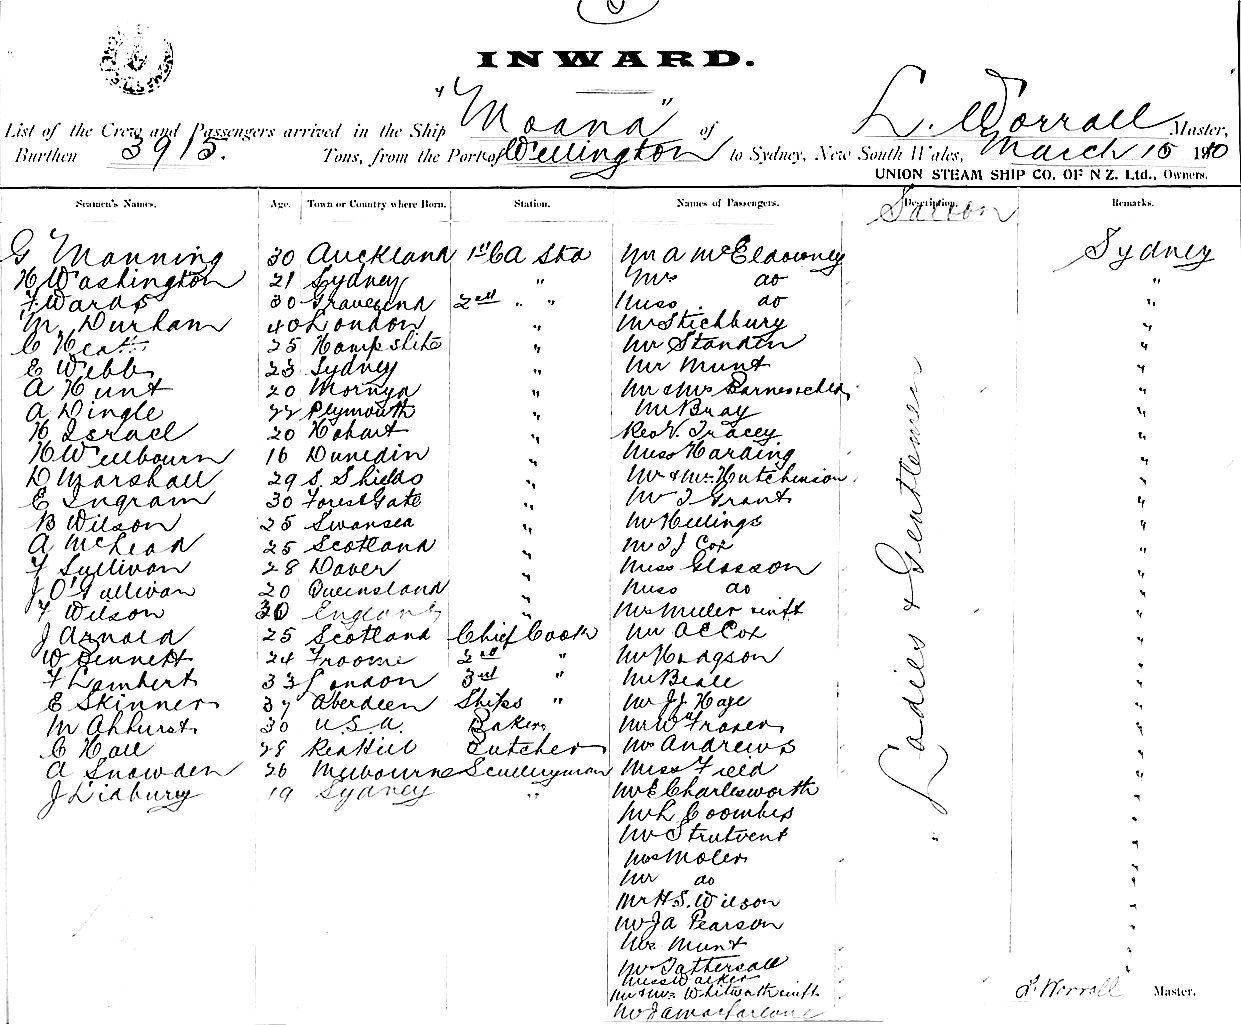 INWARD.
List of the Crew and Passengers arrived in the Ship "Moana" of L. Worrall Master,
Burthen 3915. Tons, from the Port of Wellington to Sydney, New South Wales, March 15 1910
UNION STEAM SHIP CO. OF N Z. Ltd., Owners.
Seamen's Names. Age. Town or Country where Born. Station. Names of Passengers. Description. Remarks.
Saloon
G Manning 30 Auckland 1st CA Std Mr A McEldowney Sydney
H Washington 21 Sydney " Mrs do "
F Wards 30 Gravesend 2nd " " Miss do "
M Durham 40 London " Mr Stichbury "
C Heath 25 Hampshire " Mr Standen "
E Webb 23 Sydney " Mr Munt "
A Hunt 20 Moruya " Mr & Mrs "
A Dingle 22 Plymouth " Mr Bray "
H Israel 20 Hobart " Rev V. Tracey "
H Wellbourn 16 Dunedin " Miss Harding "
D Marshall 29 S. Shields " Mr & Mrs Hutchinson "
E Ingram 30 Forest Gate " Mr J Grant "
B Wilson 25 Swansea " Mr Heelings "
A McLeod 25 Scotland " Mr J J Cox "
F Sullivan 28 Dover " Miss Glasson "
J O'Sullivan 20 Queensland " Miss do "
F Wilson 30 England " Mrs Miller & inft "
J Arnold 25 Scotland Chief Cook Mr A C Cox "
W Bennett 24 Froome 2nd " Mr Hodgson "
F Lambert 33 London 3rd " Mr Beale "
E Skinner 37 Aberdeen Ships " Mr J J Hage "
M Ahhurst 30 U.S.A. Baker Mr W Fraser "
C Hall 28 Red Hill Butcher Mr Andrews "
A Snowden 26 Melbourne Sculleryman Miss Field "
J Lidbury 19 Sydney " Mr E Charlesworth "
Mr L Coombes "
Mr "
Mrs Moler "
Mr do "
Mr H. S. Wilson "
Mr J A Pearson "
Mrs Munt "
Mr Tattersall "
Miss Walker
Mr & Mrs Whitworth & inft
Mr J A Macfarlane
Ladies & Gentlemen
L. Worrall Master.